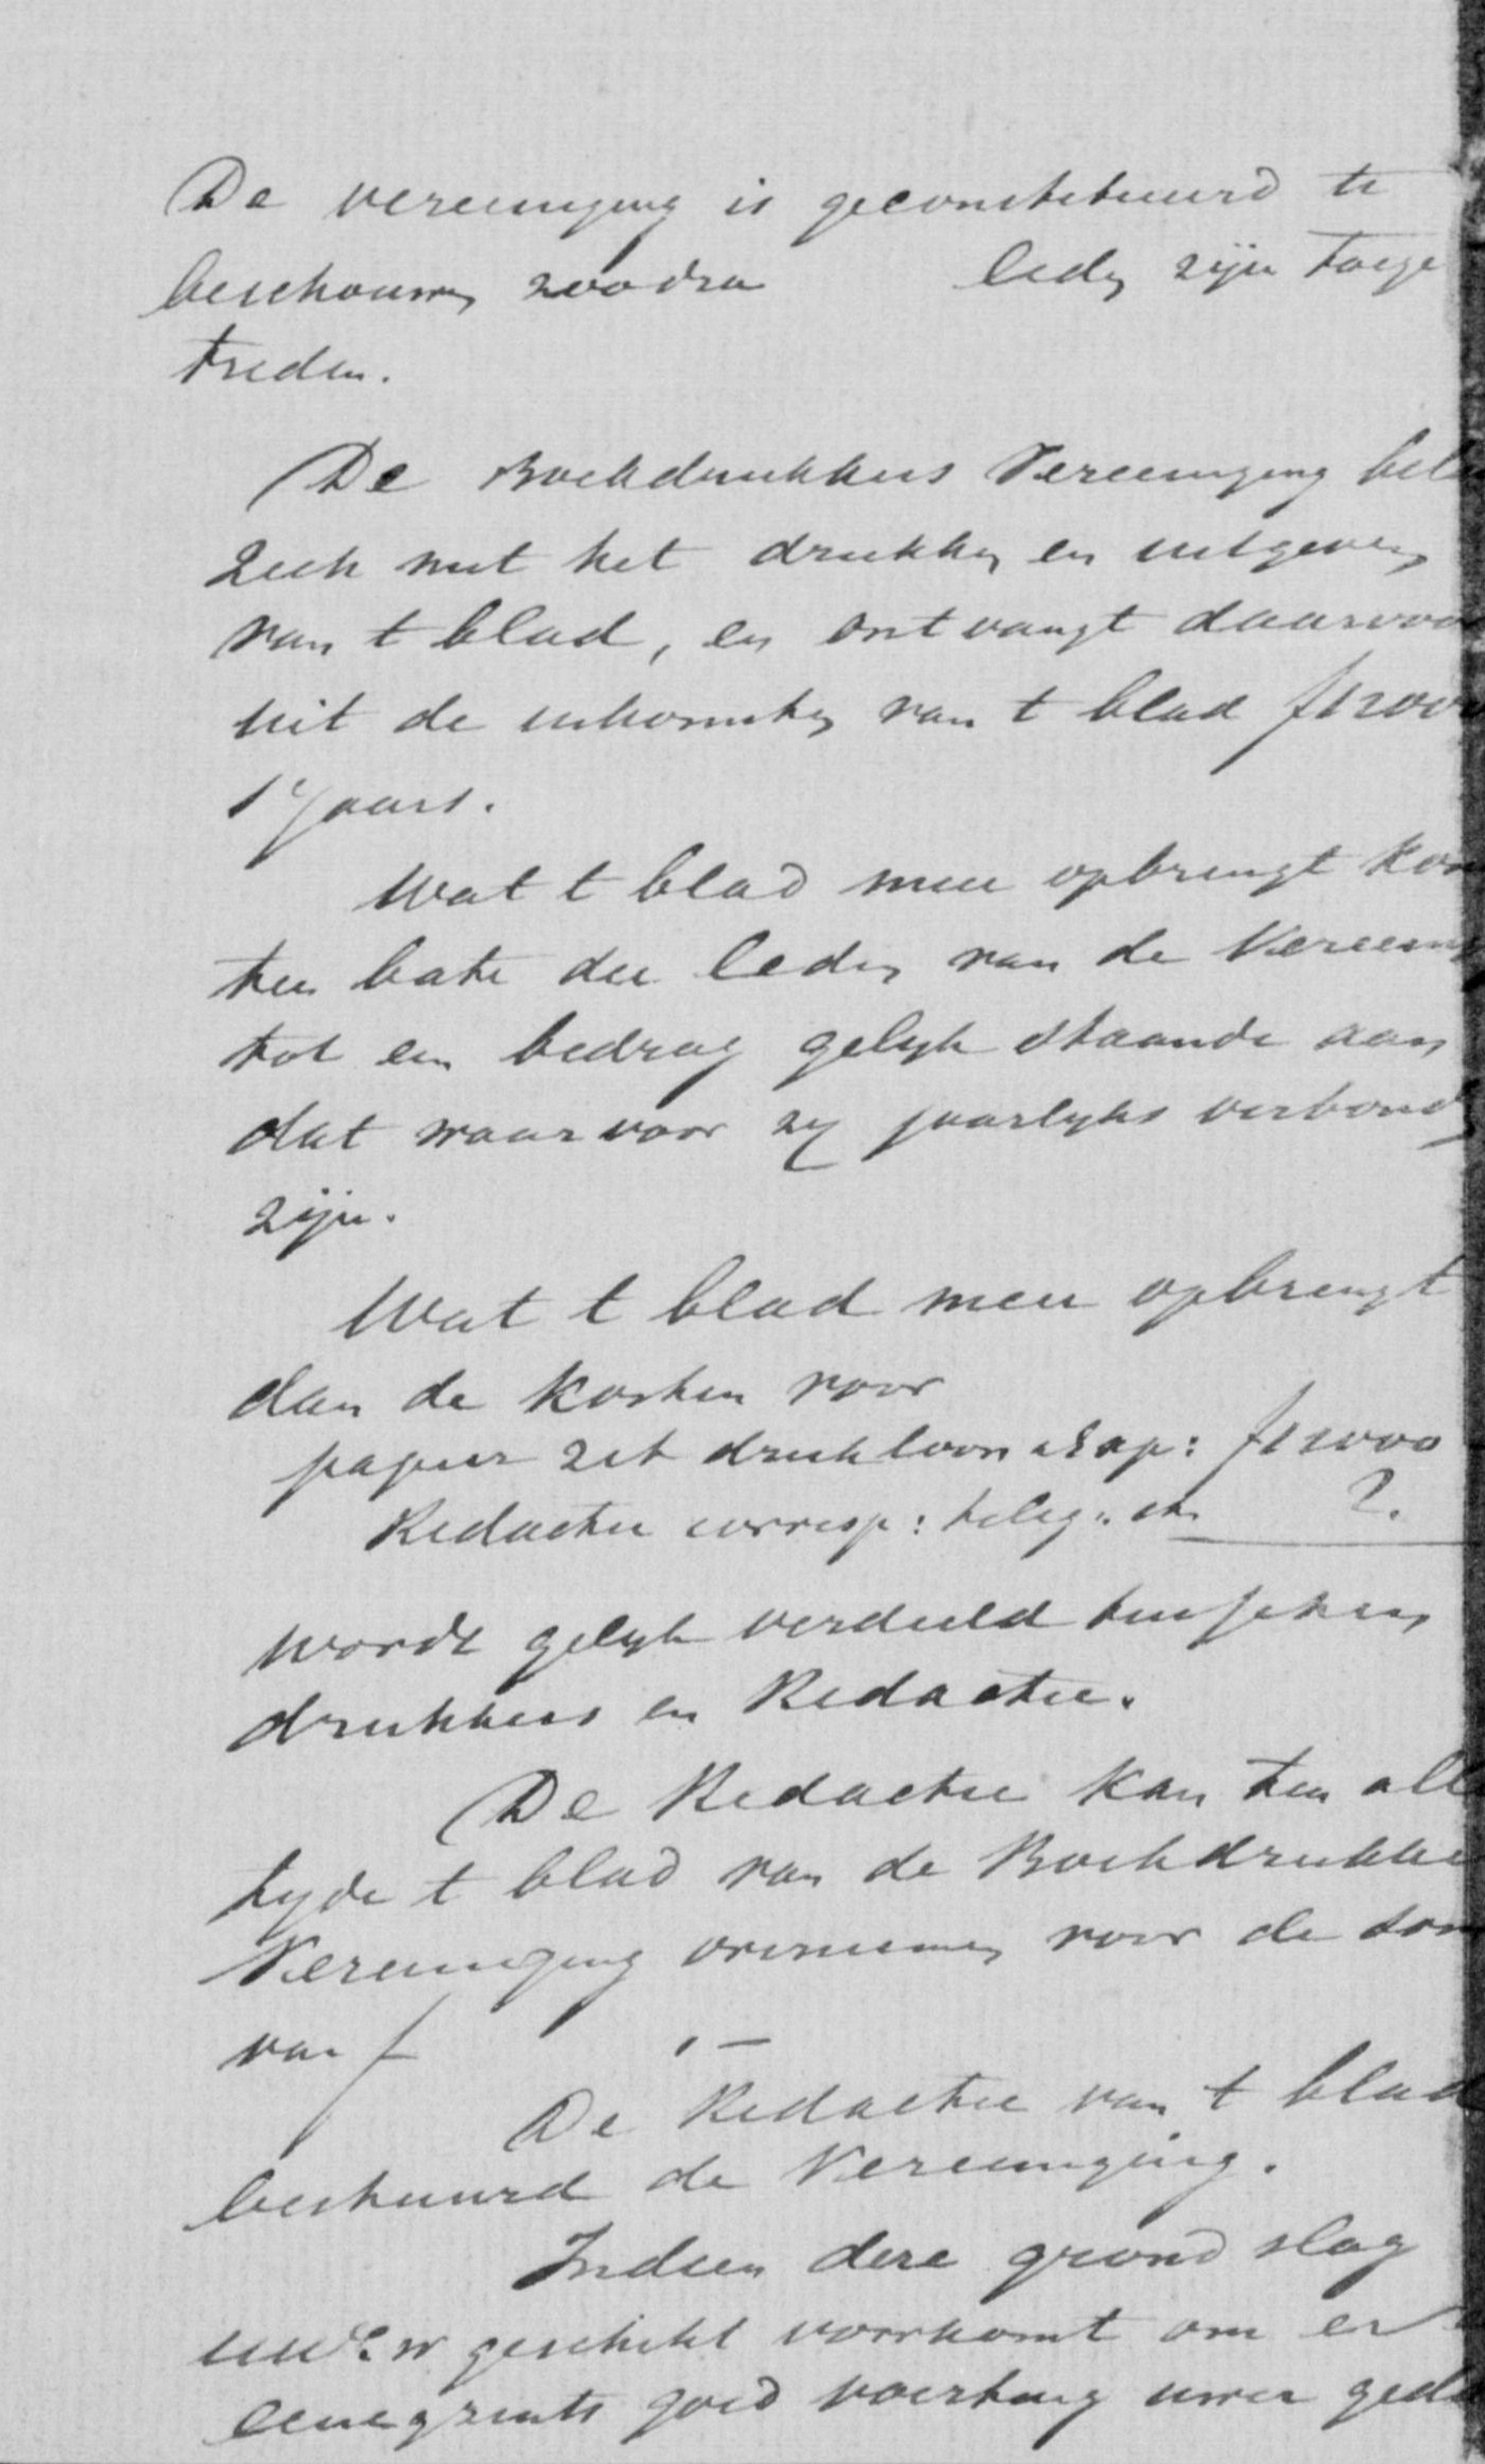 De vereeniging is geconstitueerd te
beschouwen zoodra leden zijn toege
treden.
De Boekdrukkers Vereeniging bel
zich met het drukken en uitgeven
van t blad, en ontvangt daarvoor
uit de inkomsten van t blad f12000
's jaars.
Wat t blad meer opbrengt kom
ten bate der leden van de Vereenig
tot een bedrag gelijk staande aan
dat waarvoor zij jaarlijks verbond
zijn.
Wat t blad meer opbrengt
dan de kosten voor
papier zet drukloon exp: f12000
Redactie corresp: teleg: etc ?.
wordt gelijk verdeeld tusschen
drukkers en Redactie.
De Redactie kan ten alle
tyde t blad van de Boekdrukke
Vereeniging overnemen voor de som
van f ,-
De Redactie van t blad
bestuurd de Vereeniging.
Indien deze grond slag
geschikt voorkomt om er
eenigzints goed uwer ged